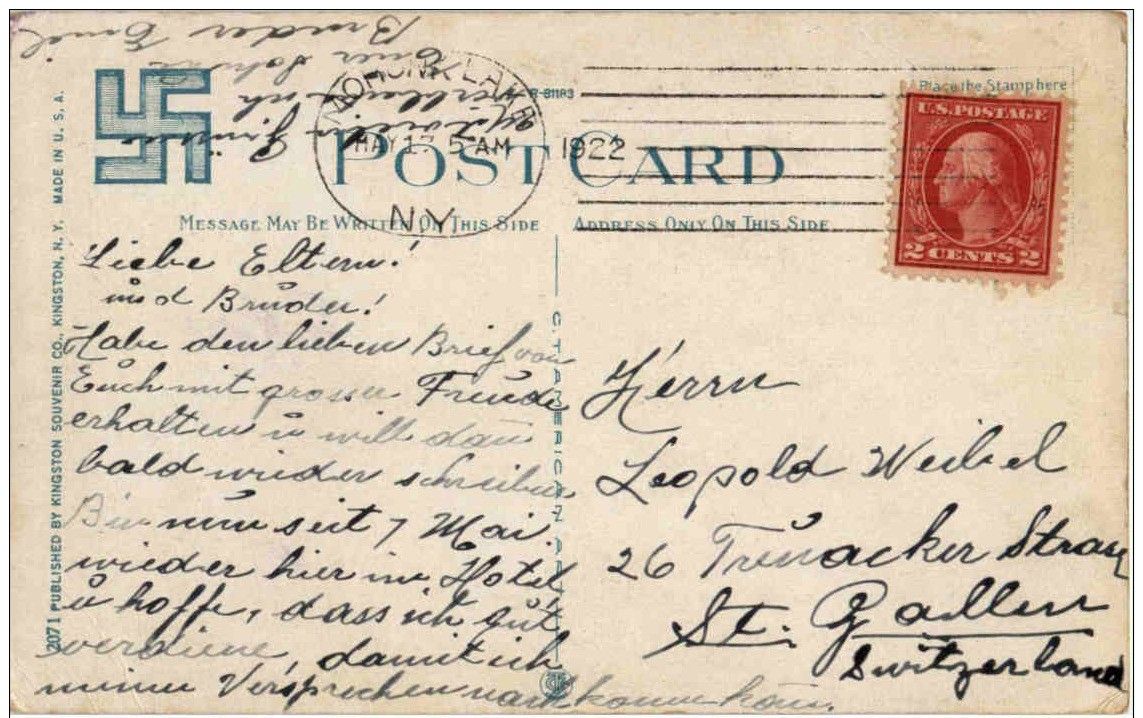 Place the Stamp here
U.S. POSTAGE
2 CENTS 2
MOHONK LAKE
MAY 1 5 AM 1922
N.Y.
R-81183
POST CARD
MESSAGE MAY BE WRITTEN ON THIS SIDE
ADDRESS ONLY ON THIS SIDE
2071 PUBLISHED BY KINGSTON SOUVENIR CO., KINGSTON, N. Y. MADE IN U. S. A.
C.T. AMERICAN ART
Liebe Eltern!
und Bruder!
Habe den lieben Brief von
Euch mit grosser Freude
erhalten u will dann
bald wieder schreiben
Bin nun seit 7 Mai
wieder hier im Hotel
u hoffe, dass ich gut
verdiene, damit ich
meinen Versprechen nachkommen kann.
verbleibe ich
Euer Sohn u
Bruder Emil
Herrn
Leopold Weibel
26 Tunacker Strasse
St. Gallen
Switzerland